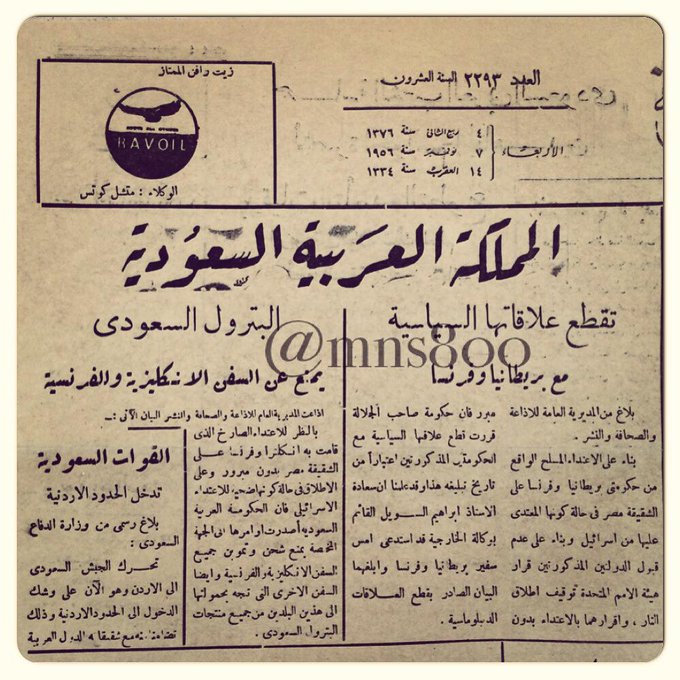 العدد ٢٢٩٣ السنة العشرون
الأربعاء
٤ ربيع الثاني سنة ١٣٧٦
٧ نوفمبر سنة ١٩٥٦
١٤ العقرب سنة ١٣٣٤
زيت رافن الممتاز
RAVOIL
الوكلاء : متشل كوتس
المملكة العربية السعودية
تقطع علاقاتها السياسية
مع بريطانيا وفرنسا
بلاغ من المديرية العامة للاذاعة
والصحافة والنشر .
بناء على الاعتداء المسلح الواقع
من حكومتى بريطانيا وفرنسا على
الشقيقة مصر فى حالة كونها المعتدى
عليها من اسرائيل وبناء على عدم
قبول الدولتين المذكورتين قرار
هيئة الامم المتحدة توقيف اطلاق
النار ، واقرارهما بالاعتداء بدون
مبرر فان حكومة صاحب الجلالة
قررت قطع علاقتها السياسية مع
الحكومتين المذكورتين اعتباراً من
تاريخ تبليغه هذا وقد علمنا ان سعادة
الاستاذ ابراهيم السويل القائم
بوكالة الخارجية قد استدعى امس
سفيرى بريطانيا وفرنسا وابلغهما
البيان الصادر بقطع العلاقات
الدبلوماسية .
البترول السعودى
يمنع عن السفن الانكليزية والفرنسية
اذاعت المديرية العامة للاذاعة والصحافة والنشر البيان الآتى :ـ
بالنظر للاعتداء الصارخ الذى
قامت به انكلترا وفرنسا على
الشقيقة مصر بدون مبرر وعلى
الاطلاق فى حالة كونها ضحية للاعتداء
الاسرائيلى فان الحكومة العربية
السعودية أصدرت اوامرها الى الجهة
المختصة بمنع شحن وتموين جميع
السفن الانكليزية والفرنسية وايضا
السفن الاخرى التى تتجه بحمولتها
الى هذين البلدين من جميع منتجات
البترول السعودى .
القوات السعودية
تدخل الحدود الاردنية
بلاغ رسمى من وزارة الدفاع
السعودى :
تحرك الجيش السعودى
الى الاردن وهو الآن على وشك
الدخول الى الحدود الاردنية وذلك
تضامنا منه مع شقيقاته الدول العربية
@mns800